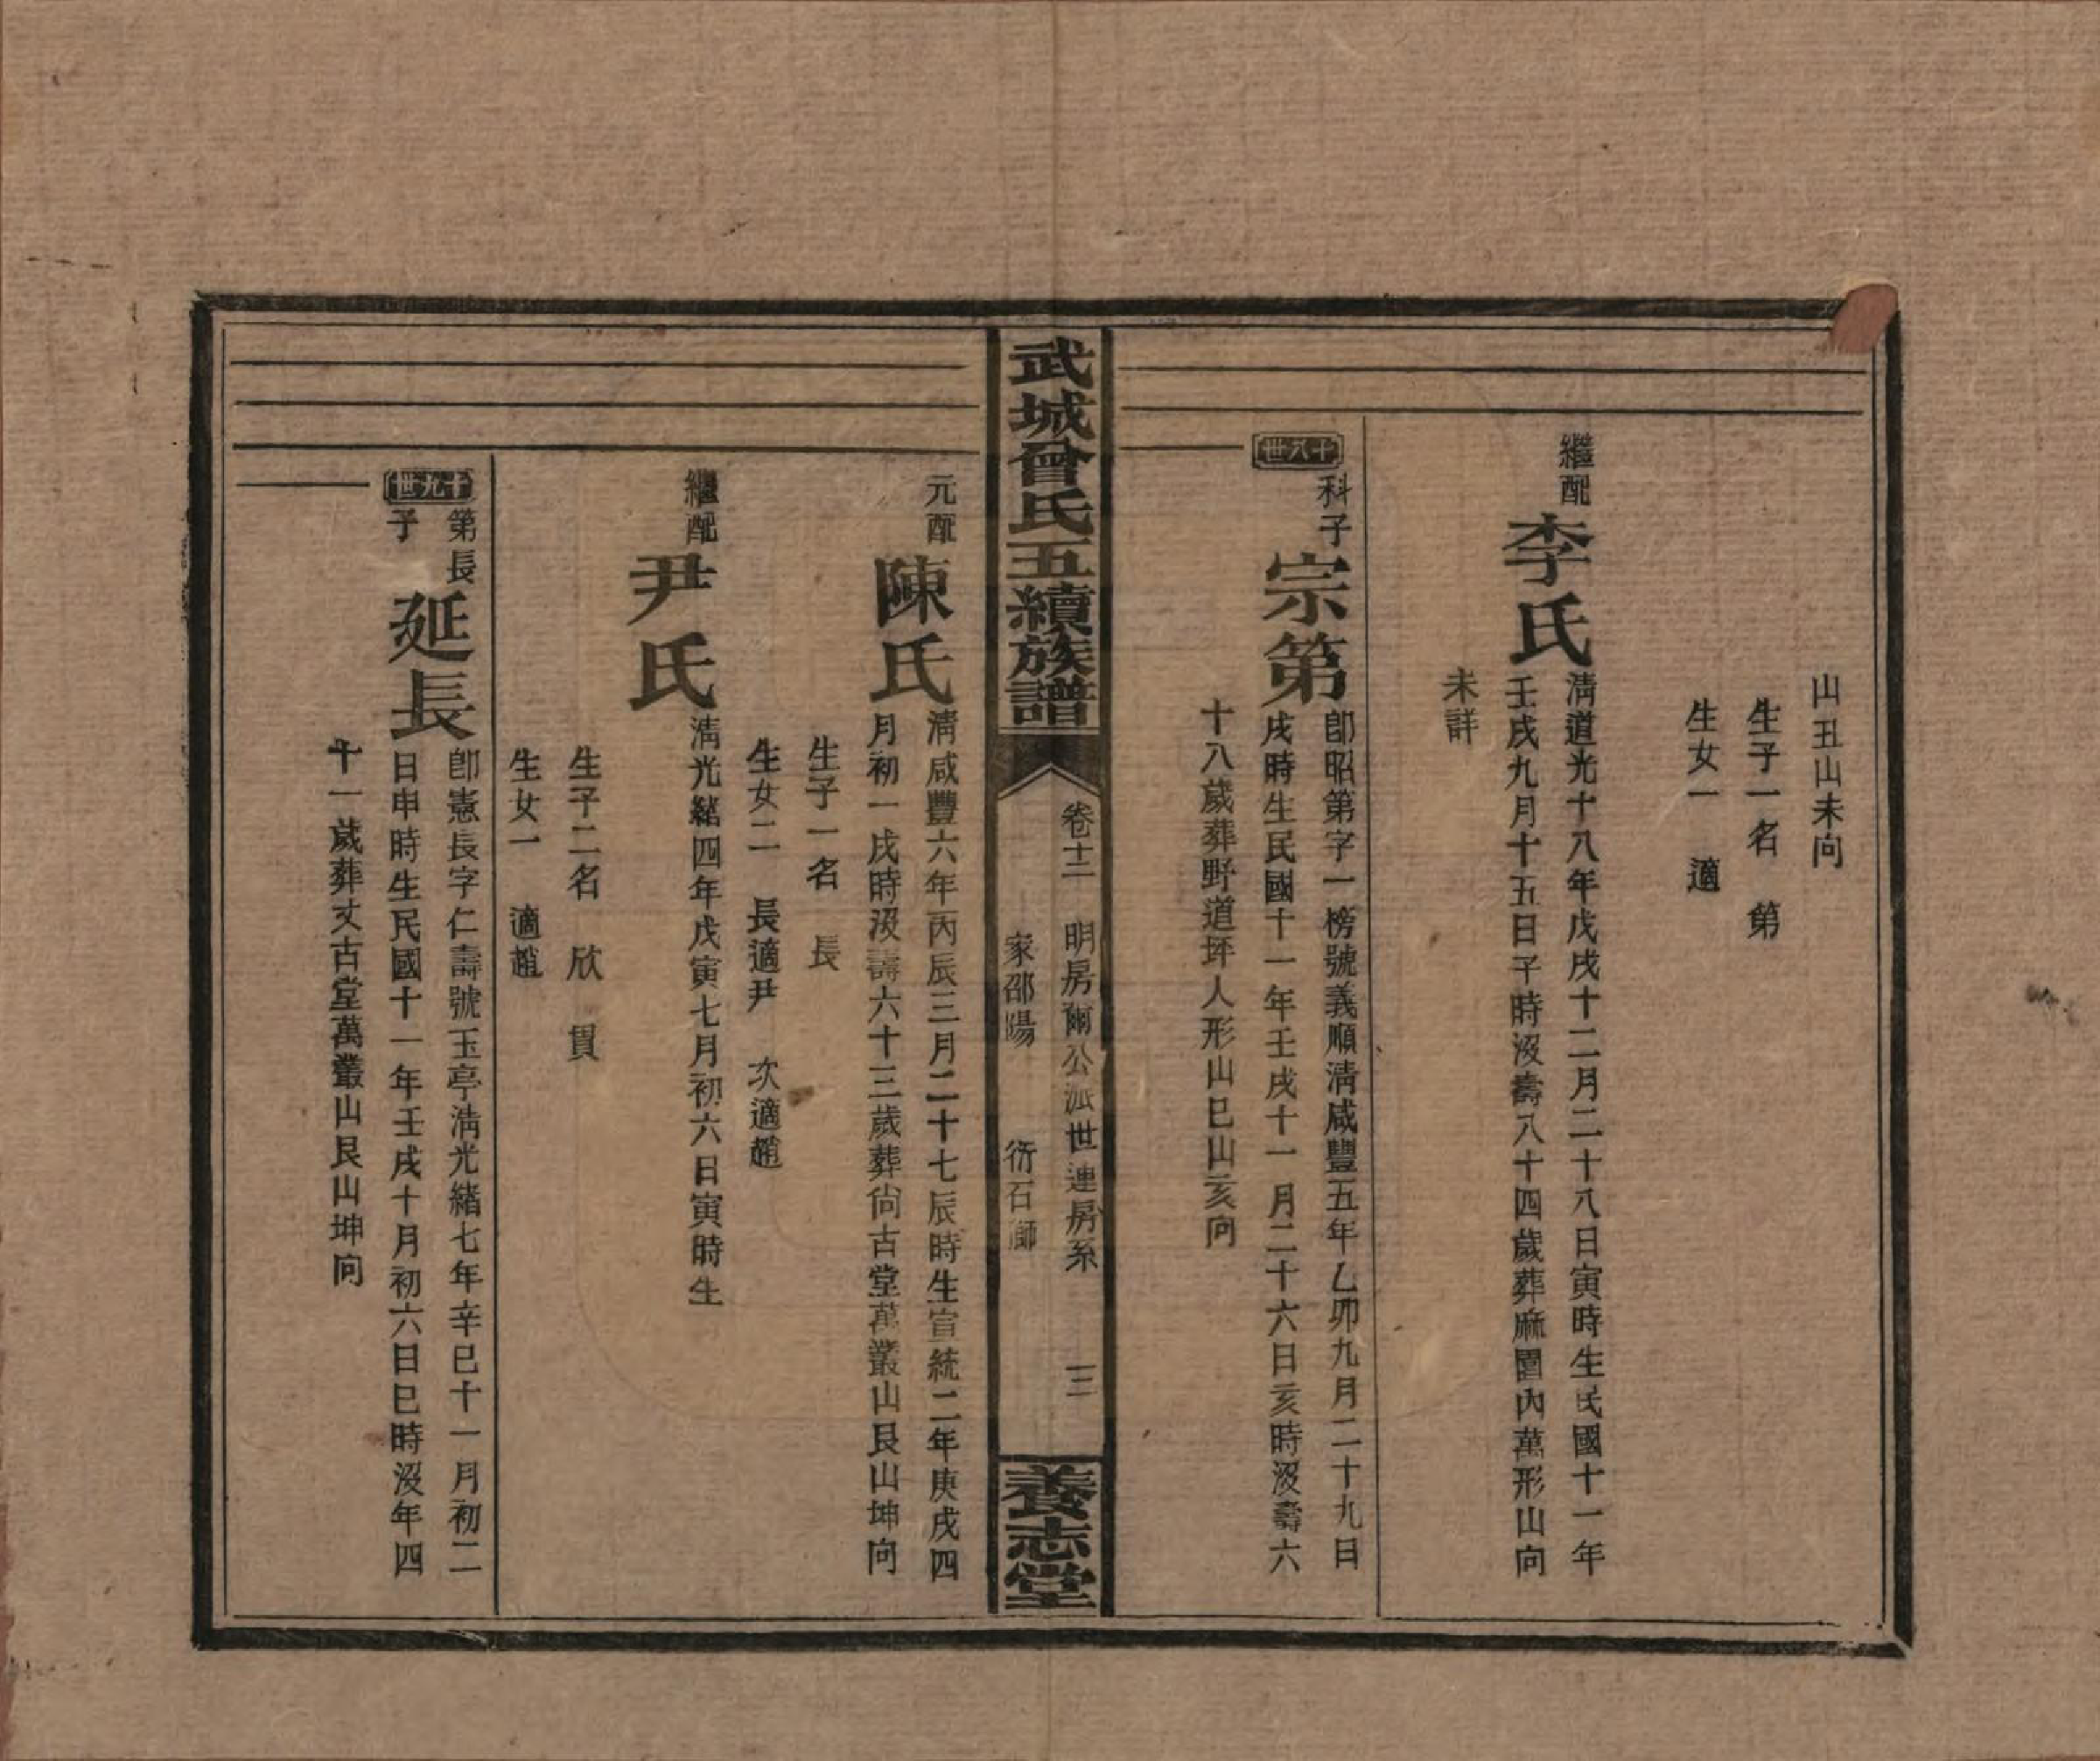 山丑山未向
生子一名　第
生女一　適
繼配
李氏
淸道光十八年戊戌十二月二十八日寅時生民國十一年
壬戌九月十五日子時沒壽八十四歲葬麻園內萬形山向
未詳
十八世
科子
宗第
卽昭第字一榜號義順淸咸豐五年乙卯九月二十九日
戌時生民國十一年壬戌十一月二十六日亥時沒壽六
十八歲葬野道坪人形山巳山亥向
武城曾氏五續族譜
卷十二　明房爾公派世連房系　三
家邵陽　衍石
養志堂
元配
陳氏
淸咸豐六年丙辰三月二十七辰時生宣統二年庚戌四
月初一戌時沒壽六十三歲葬尙古堂萬叢山艮山坤向
生子一名　長
生女二　長適尹　次適趙
繼配
尹氏
淸光緒四年戊寅七月初六日寅時生
生子二名　欣　貫
生女一　適趙
十九世
第長
子
延長
卽憲長字仁壽號玉亭淸光緒七年辛巳十一月初二
日申時生民國十一年壬戌十月初六日巳時沒年四
十一歲葬丈古堂萬叢山艮山坤向